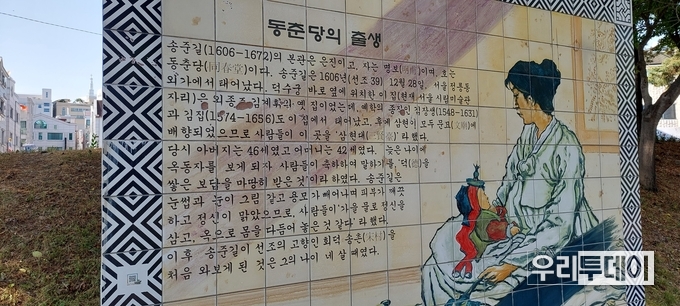 동춘당의 출생
송준길(1606-1672)의 본관은 은진이고, 자는 명보(明甫)이며, 호는
동춘당(同春堂)이다. 송준길은 1606년(선조 39) 12월 28일, 서울 정릉동
외가에서 태어났다. 덕수궁 바로 옆에 위치한 이 집(현재 서울시립미술관
자리)은 외종 김계휘의 옛 집이었는데, 예학의 종장인 김장생(1548-1631)
과 김집(1574-1656)도 이 집에서 태어났고, 후에 삼현이 모두 문묘(文廟)에
배향되었으므로 사람들이 이 곳을 '삼현대(三賢臺)'라 했다.
당시 아버지는 46세였고 어머니는 42세였다. 늦은 나이에
옥동자를 보게 되자 사람들이 축하하여 말하기를, '덕(德)을
쌓은 보답을 마땅히 받은 것'이라 하였다. 송준길은
눈썹과 눈이 그린 같고 용모가 빼어나며 피부가 깨끗
하고 정신이 맑았으므로, 사람들이 '가을 물로 정신을
삼고, 옥으로 몸을 다듬어 놓은 것 같다'라 했다.
이후 송준길이 선조의 고향인 회덕 송촌(宋村)을
처음 와보게 된 것은 그의 나이 네 살 때였다.
우리투데이